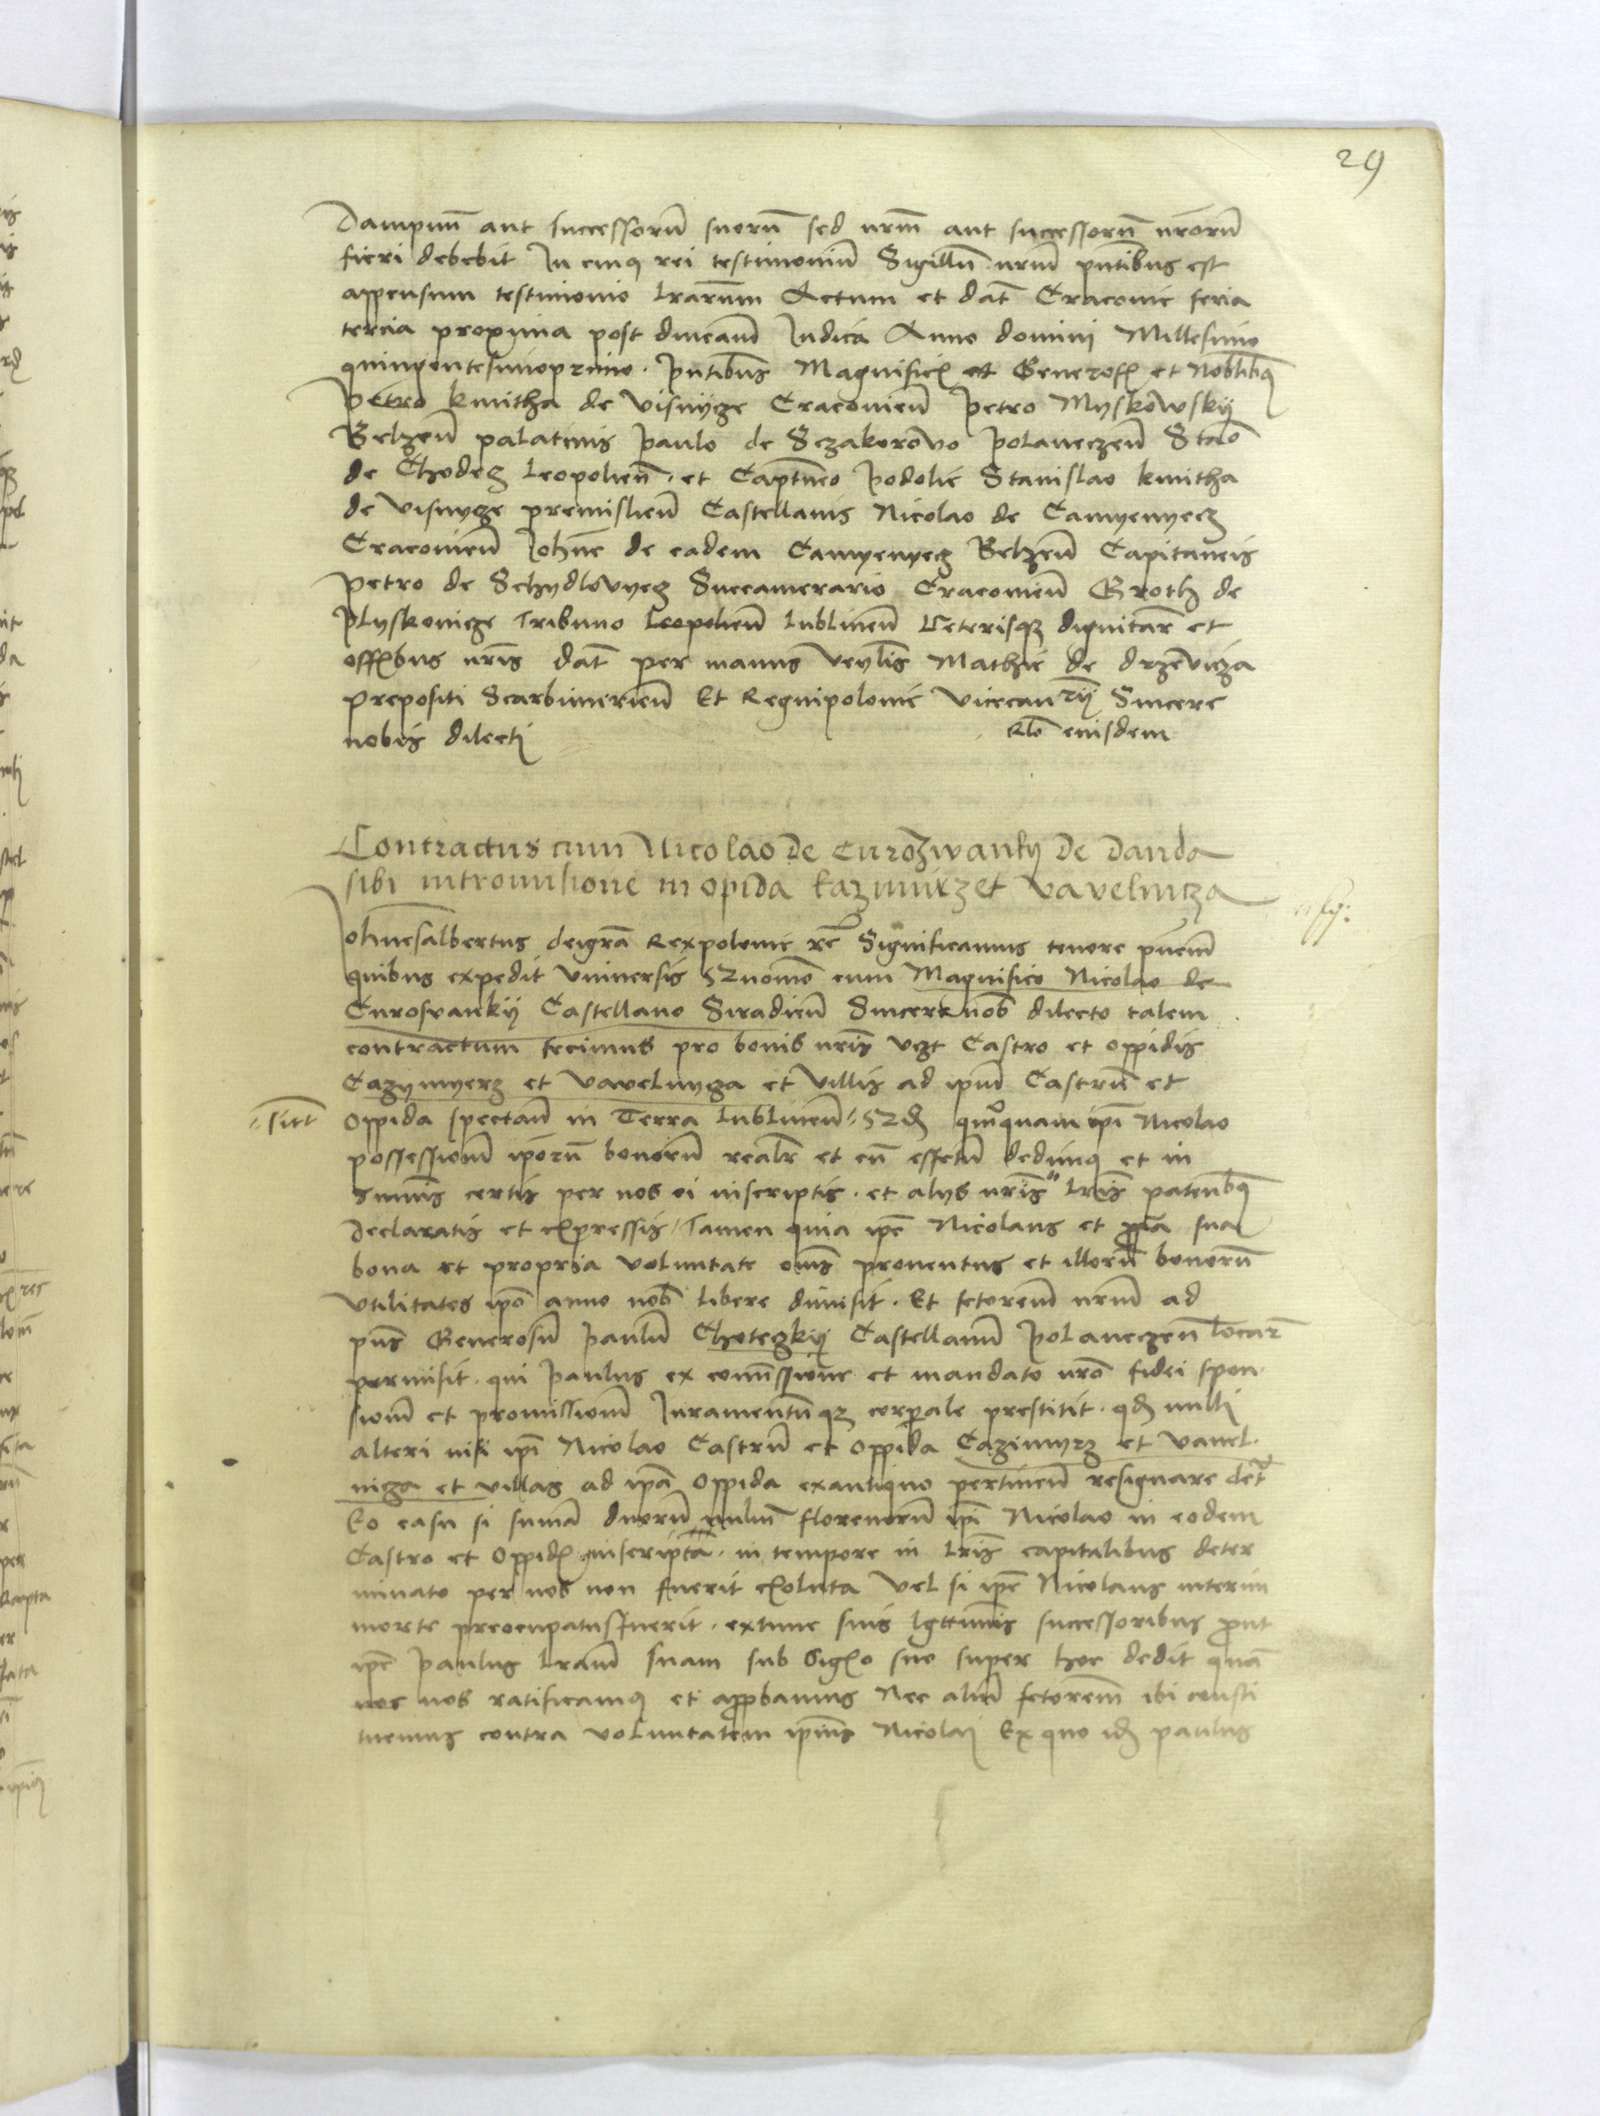 29
Dampnu aut successoru suoru sed nrm aut successoru nroru
fieri debebit In cuius rei testimoniu Sigillu nrm pntibus est
appensum testimonio lrarum Actum et dat Cracovie feria
tercia proxima post dnicam Iudica Anno domini Millesimo
quingentesimoprimo. pntibus Magnific et Generos et Nobilibus
Petro kmitha de visnijcze Cracovien Petro Myskowskij
Belzen palatinis paulo de Sczakorowo polaneczen Stao
de Chodecz Leopolien et Captneo podolie Stanislao kmitha
de visnycze premislien Castellanis Nicolao de Camyenyecz
Cracovien Iohne de eadem Camyenyecz Belzen Capitaneis
petro de Schydlovyecz Succamerario Cracovien Groth de
plyskovicze Tribuno Leopolien Lublinen Ceterisqz dignitar et
offibus nris dat per manus Veylis Mathie de drzevicza
prepositi Scarbimirien Et Regnipolonie Vicecanrij Sincere
nobis dilecti
Rlo eiusdem
Contractus cum Nicolao de Curozwanky de danda
sibi intromissione in opida kazimirz et vavelnicza
Iohnesalbertus deigra Rexpolonie re Significamus tenore pncim
quibus expedit Universis quomo cum Magnifico Nicolao de
Curosvankij Castellano Siradien Sincere nob dilecto talem
contractum fecimus pro bonis nris vzt Castro et oppidis
Cazymyerz et vavelnycza et villis ad ipm Castru et
Oppida spectan in Terra Lublinen sitt qd quoquam ipi Nicolao
possessionem iporu bonoru realr et cu effectu dedimus et in
summis certis per nos ei inscriptis. et alys nris lris patentibus
declaratis et expressis Tamen quia ipe Nicolaus et pria sua
bona et propria voluntate oms proventus et illoru bonoru
Utilitates ipo anno nob libere dimisit. Et fctorem nrm ad
pns Generosu paulu Chotegkij Castellanu polaneczen locar
permisit. qui paulus ex comissione et mandato nro fidei spon
sione et promissione Iuramentuqz corporale prestitit. qd nulli
alteri nisi ipi Nicolao Castru et oppida Cazimyrz et vavel
nicza et villas ad ipa Oppida exantiquo pertinen resignare det
Eo casu si suma duoru milm florenoru ipi Nicolao in eodem
Castro et Oppid inscripta. in tempore in lris capitalibus deter
minato per nos non fuerit exoluta Vel si ipe Nicolaus interim
morte preocupatus fuerit. extunc suis lgttimis successoribus prout
ipe paulus lram suam sub Siglo suo super hoc dedit qua
nos ratificamus et approbamus Nec aliu fctorem ibi consti
tuemus contra voluntatem ipius Nicolai Ex quo id paulus